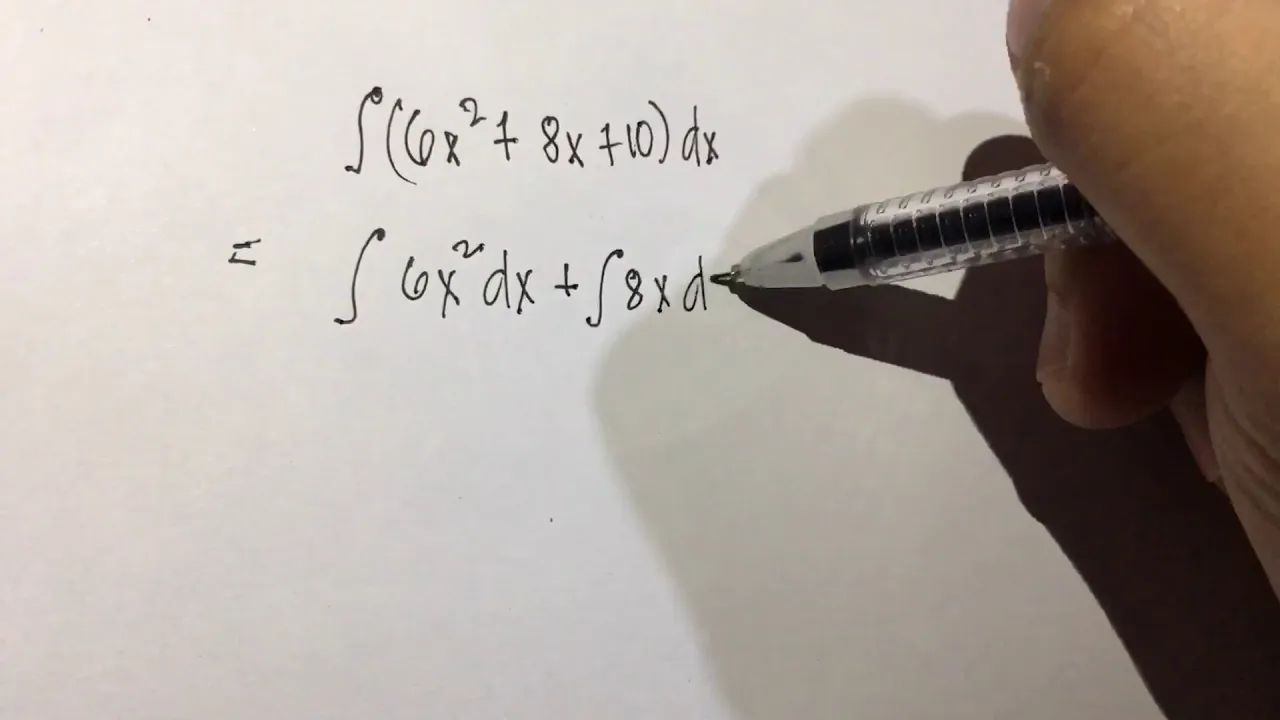 ∫(6x² + 8x + 10) dx
= ∫ 6x² dx + ∫ 8x d